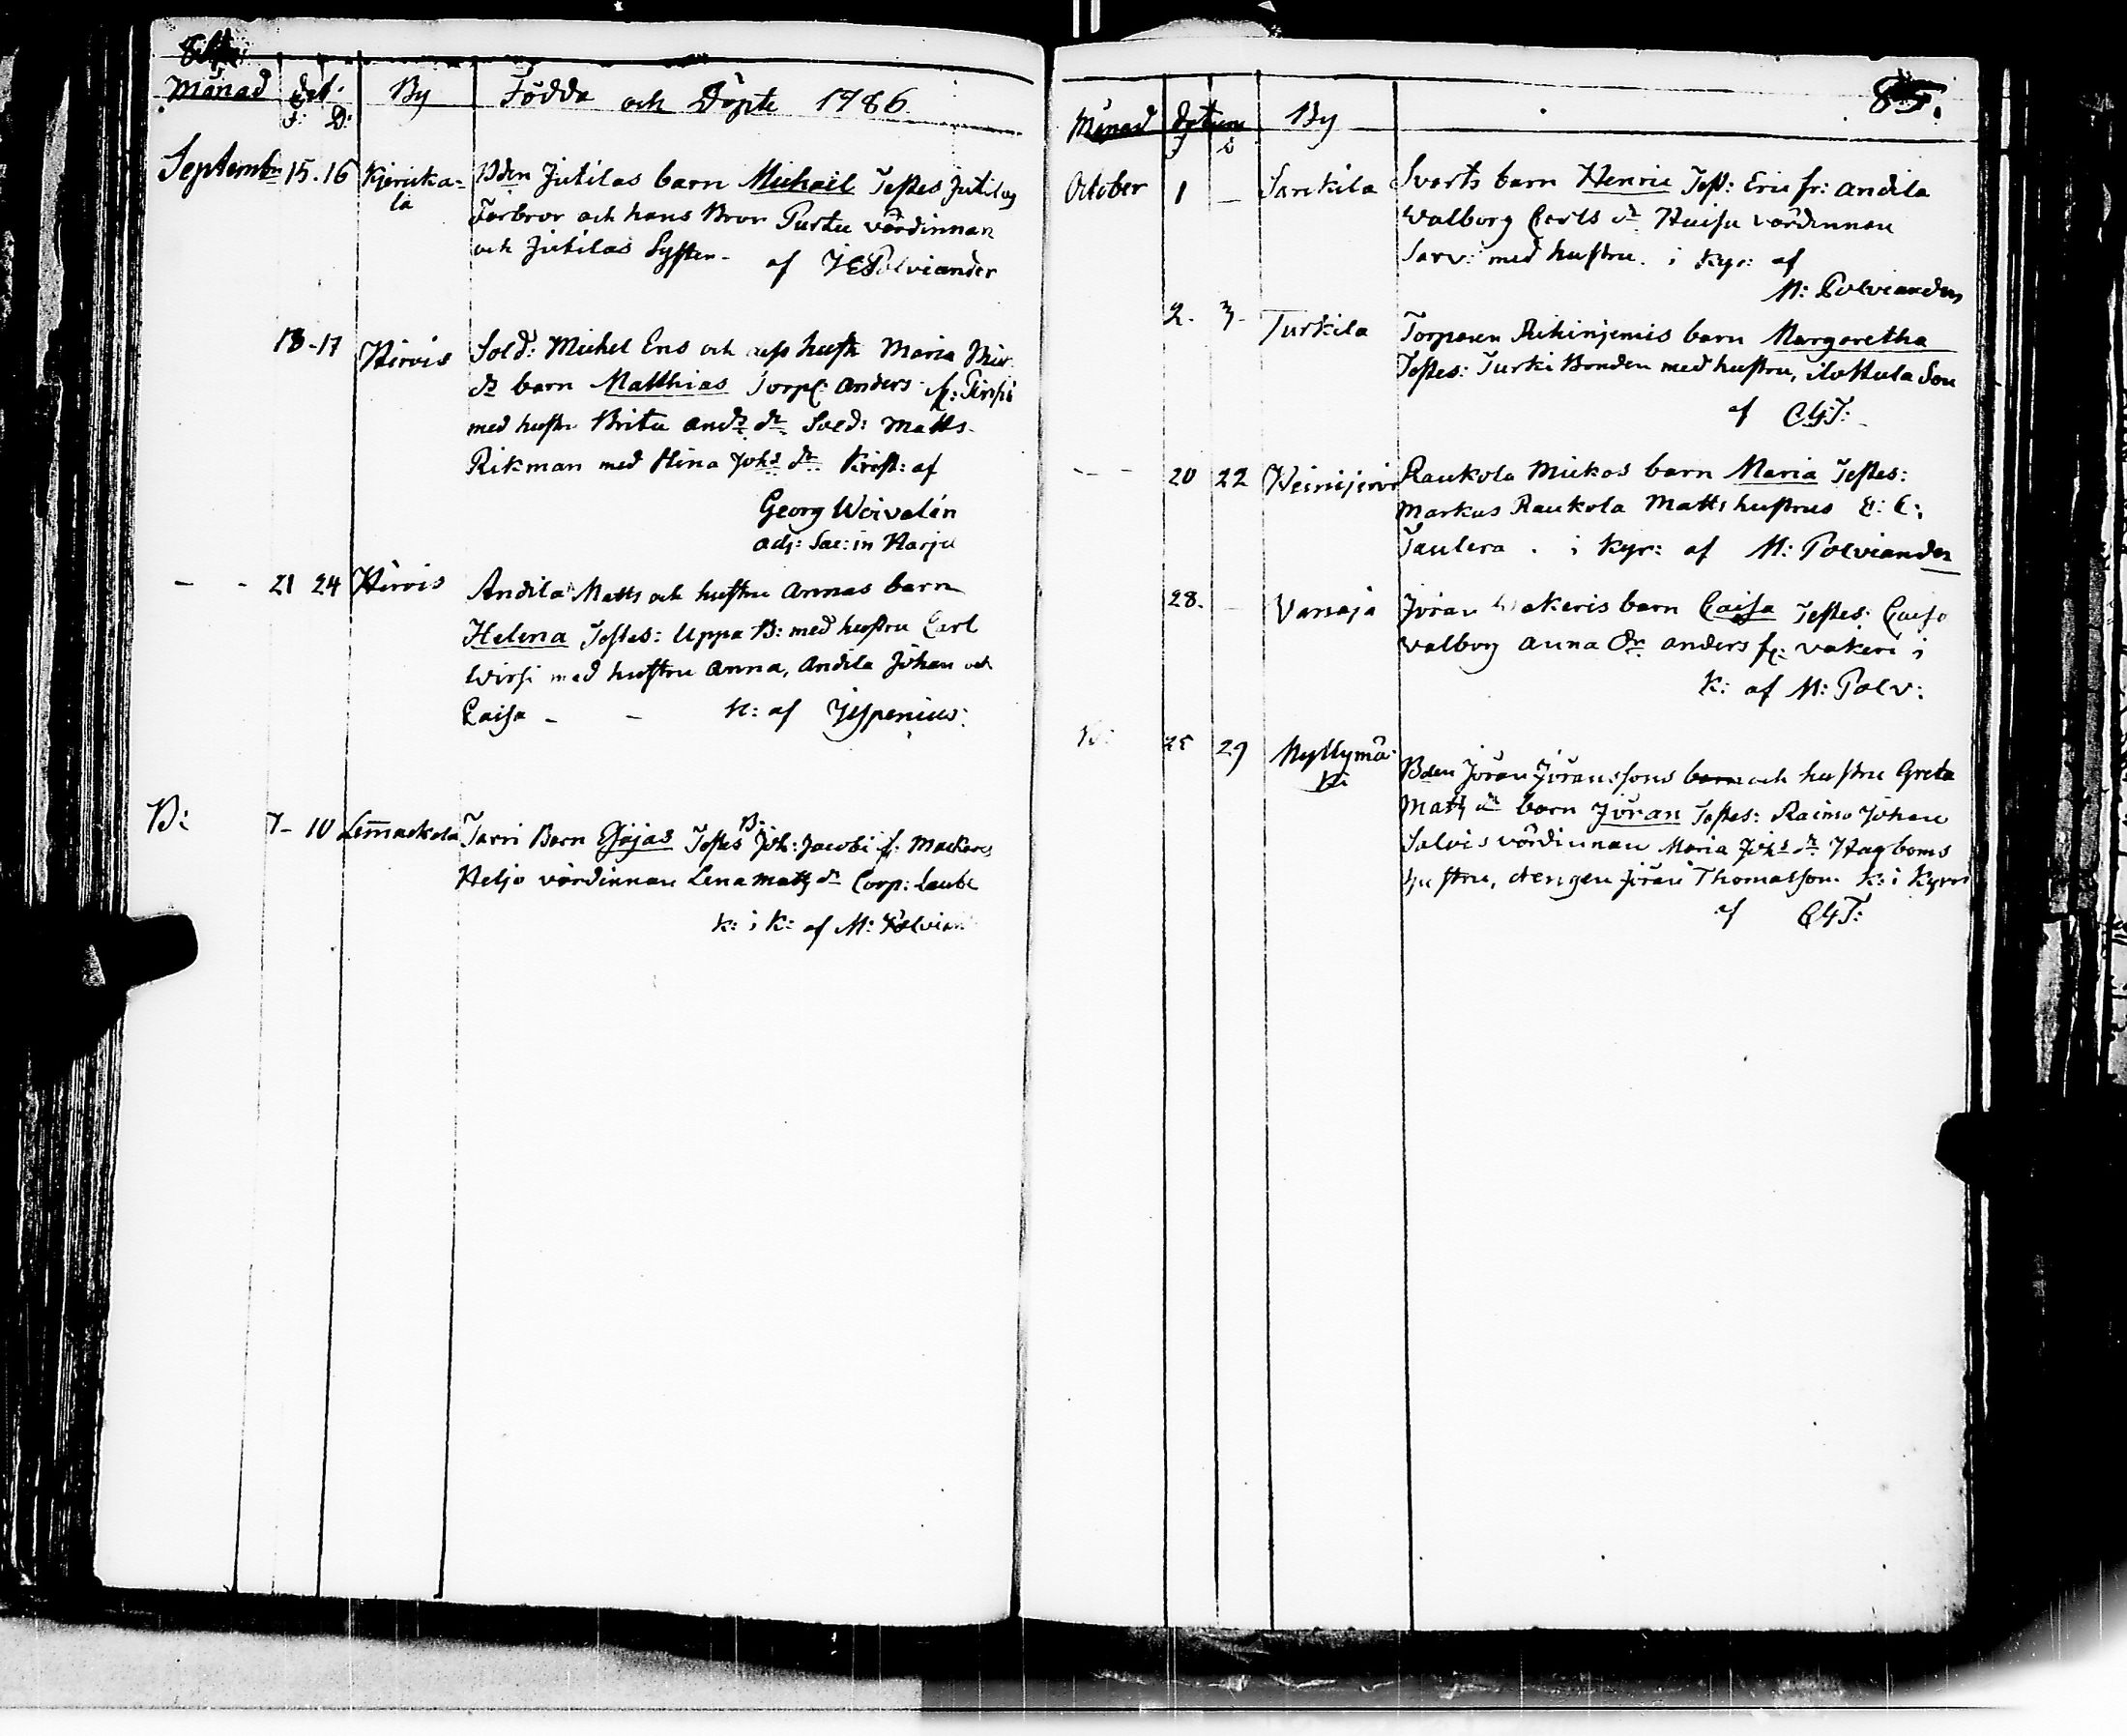 Månad dat: By Födda och Döpte 1786.
F: D:
Septembr 15. 16 Kjericka= Bden Jutilas barn Michaël Testes Jutilas
la Farbror och hans Bror Purtu värdinnan
och Jutilas Syster. af JEPolviander
18-17 Hirvis Sold: Michel Ens och dess hustr Maria
dr barn Matthias Torp: Anders
med hustr Brita Ands dr Sold: Matts
Rikman med Stina Johs dr Krist: af
Georg Woivalén
adj: Sac: in Karju
- - 21 24 Hirvis Andila Matts och hustru Annas barn
Helena Testes: Uppa B: med hustru Carl
Wirsi med hustru Anna, Andila Johan och
Caisa - - K: af Jespenius:
B: 7- 10 Lemackola Tarri Barn Esajas Testes B. Joh: Jacobi f: Mackares
Heljo värdinnan Lena Matts dr Corp: Laube
K: i K: af M: Polvian
85.
Månad datum By
October 1 - Sarkila Svarts barn Henric Test: Eric fr: Andila
Walborg Carls dr Huisu värdinnan
Sarv: med hustru. i Kyr: af
M: Polviander
2. 3. Turkila Torparen Rihinjemis barn Margaretha
Testes: Turki Bonden med hustru, Son
af CGT:
- - 20 22 Heinijervi Raukola Mickos barn Maria Testes:
Markus Raukola Matts hustrus E: C:
Taulera . i Kyr: af M: Polviander
28. - Vanaja Jöran Wakeris barn Caisa Testes: Caisa
Valborg Anna Anders fr: vakeri i
K: af M: Polv:
B: 25 29 Myllymä-
ki Bden Jöran Jöranssons barn och hustru Greta
Matts dr barn Jöran Testes: Raimo Johan
Salvis värdinnan Maria Johs dr Hagboms
hustru, drengen Jöran Thomasson K: i Kyrr
af CGT: